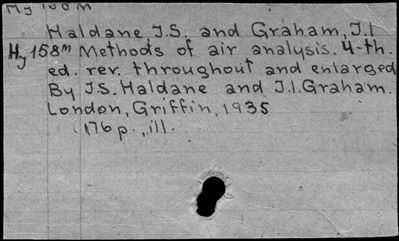 Hy 158m
Haldane, J.S. and Graham, J.I
Hy 158m Methods of air analysis. 4-th.
ed. rev. throughout and enlarged
By J.S. Haldane and J.I. Graham.
London, Griffin, 1935
176 p., ill.